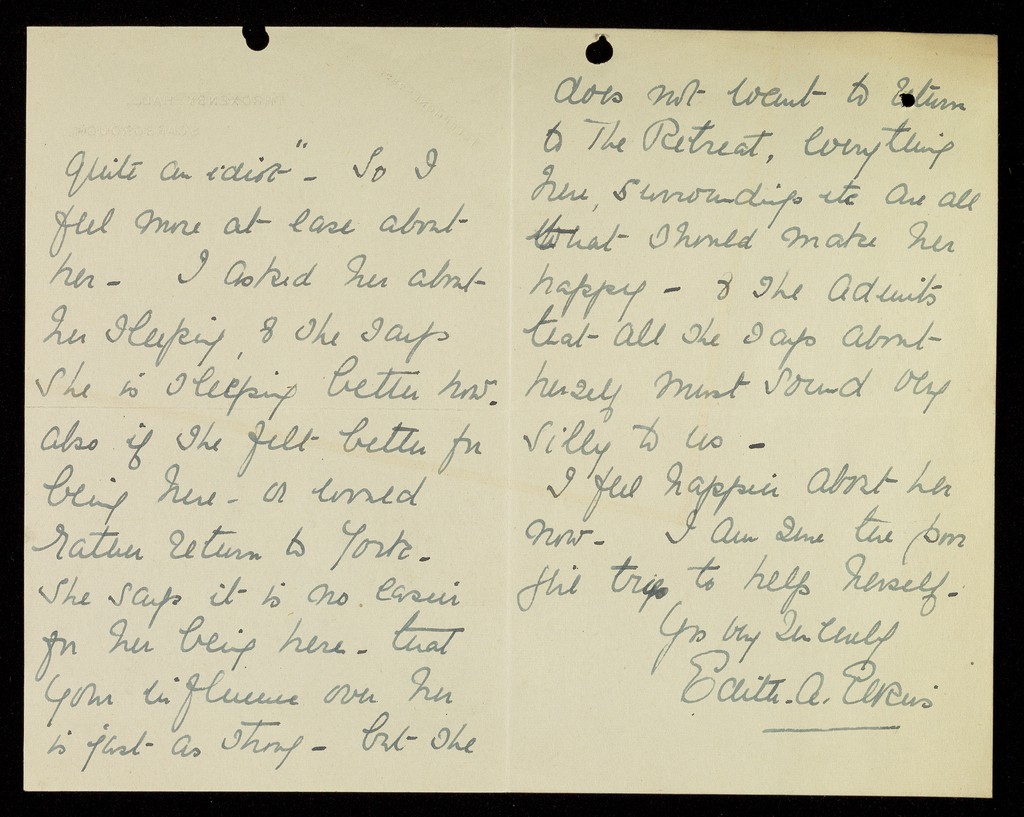 quite an idiot" - So I
feel more at ease about
her - I asked her about
her sleeping, & she says
she is sleeping better now.
also if she felt better for
being here - or would
rather return to York -
She says it is no easier
for her being here - that
your influence over her
is just as strong - but she
does not want to return
to The Retreat, Everything
here, surroundings etc are all
that should make her
happy - & she admits
that all she says about
herself must sound very
silly to us -
I feel happier about her
now - I am sure the poor
girl tries to help herself -
Yrs very sincerely
Edith. A. Elkins